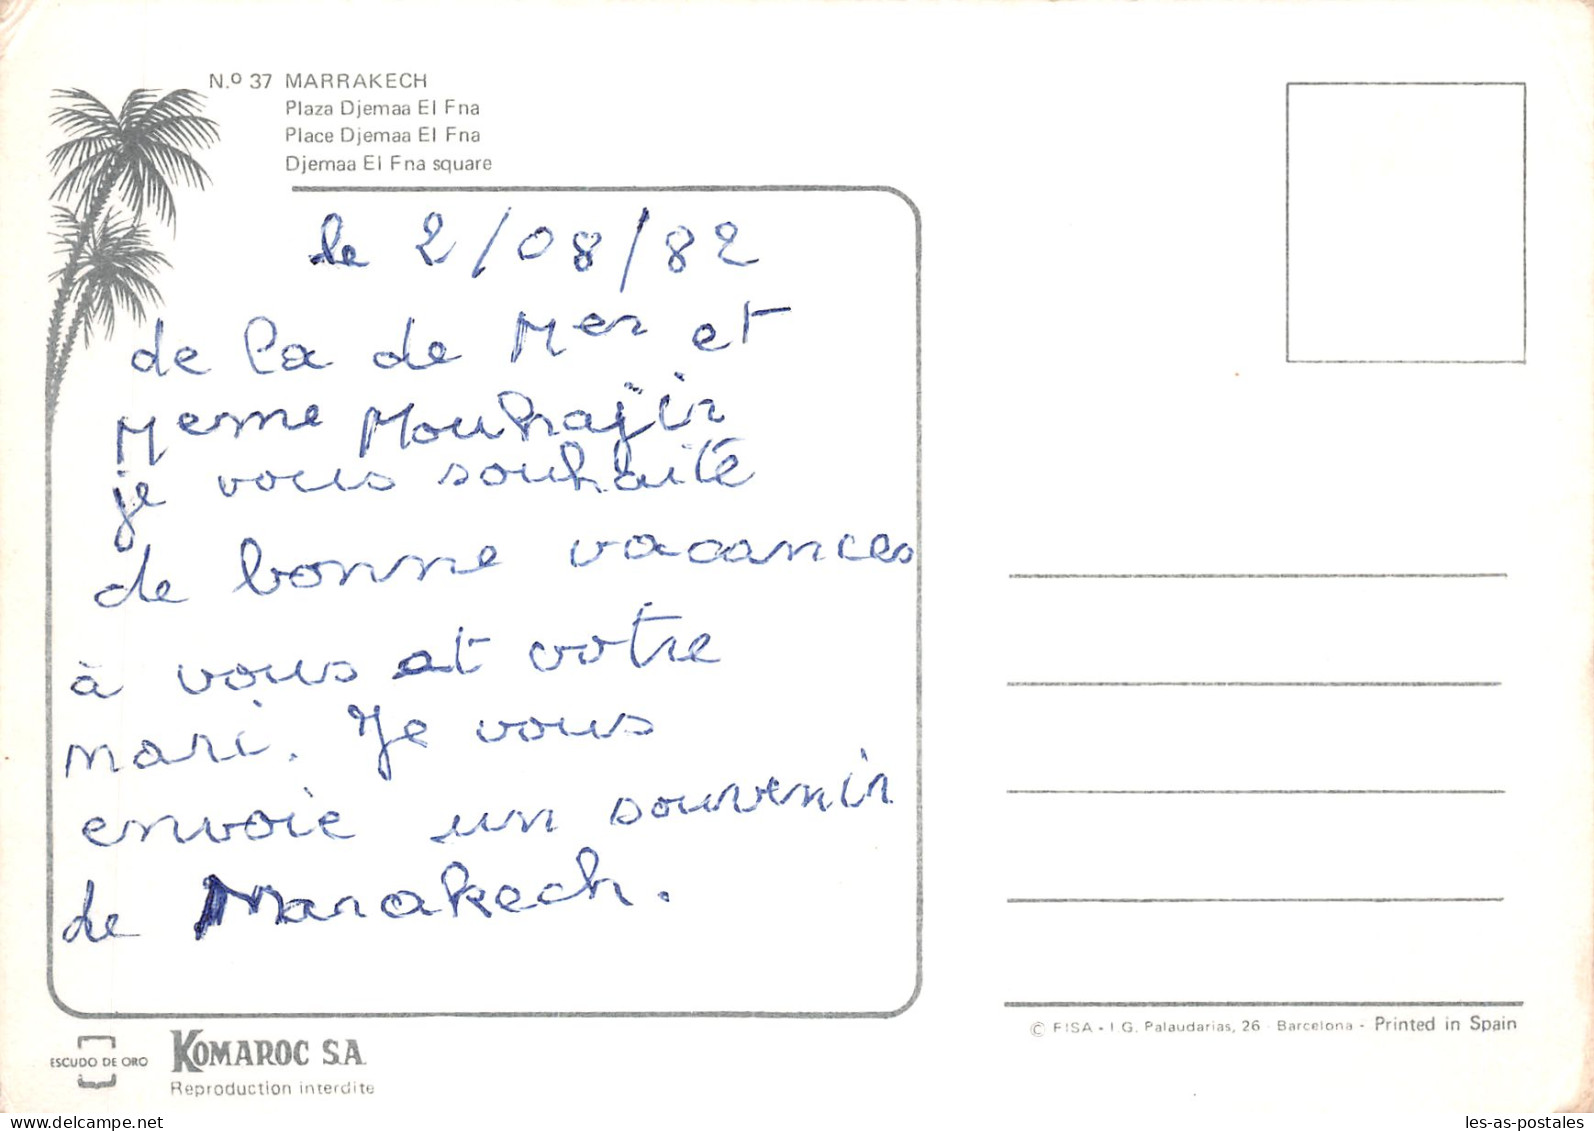 N.º 37 MARRAKECH
Plaza Djemaa El Fna
Place Djemaa El Fna
Djemaa El Fna square
le 2/08/82
de la de Mer et
Meme Mouhajir
je vous souhaite
de bonne vacances
à vous et votre
mari. Je vous
envoie un souvenir
de Marakech.
ESCUDO DE ORO
KOMAROC S.A.
Reproduction interdite
© FISA - I.G. Palaudarias, 26 - Barcelona - Printed in Spain
delcampe.net
les-as-postales